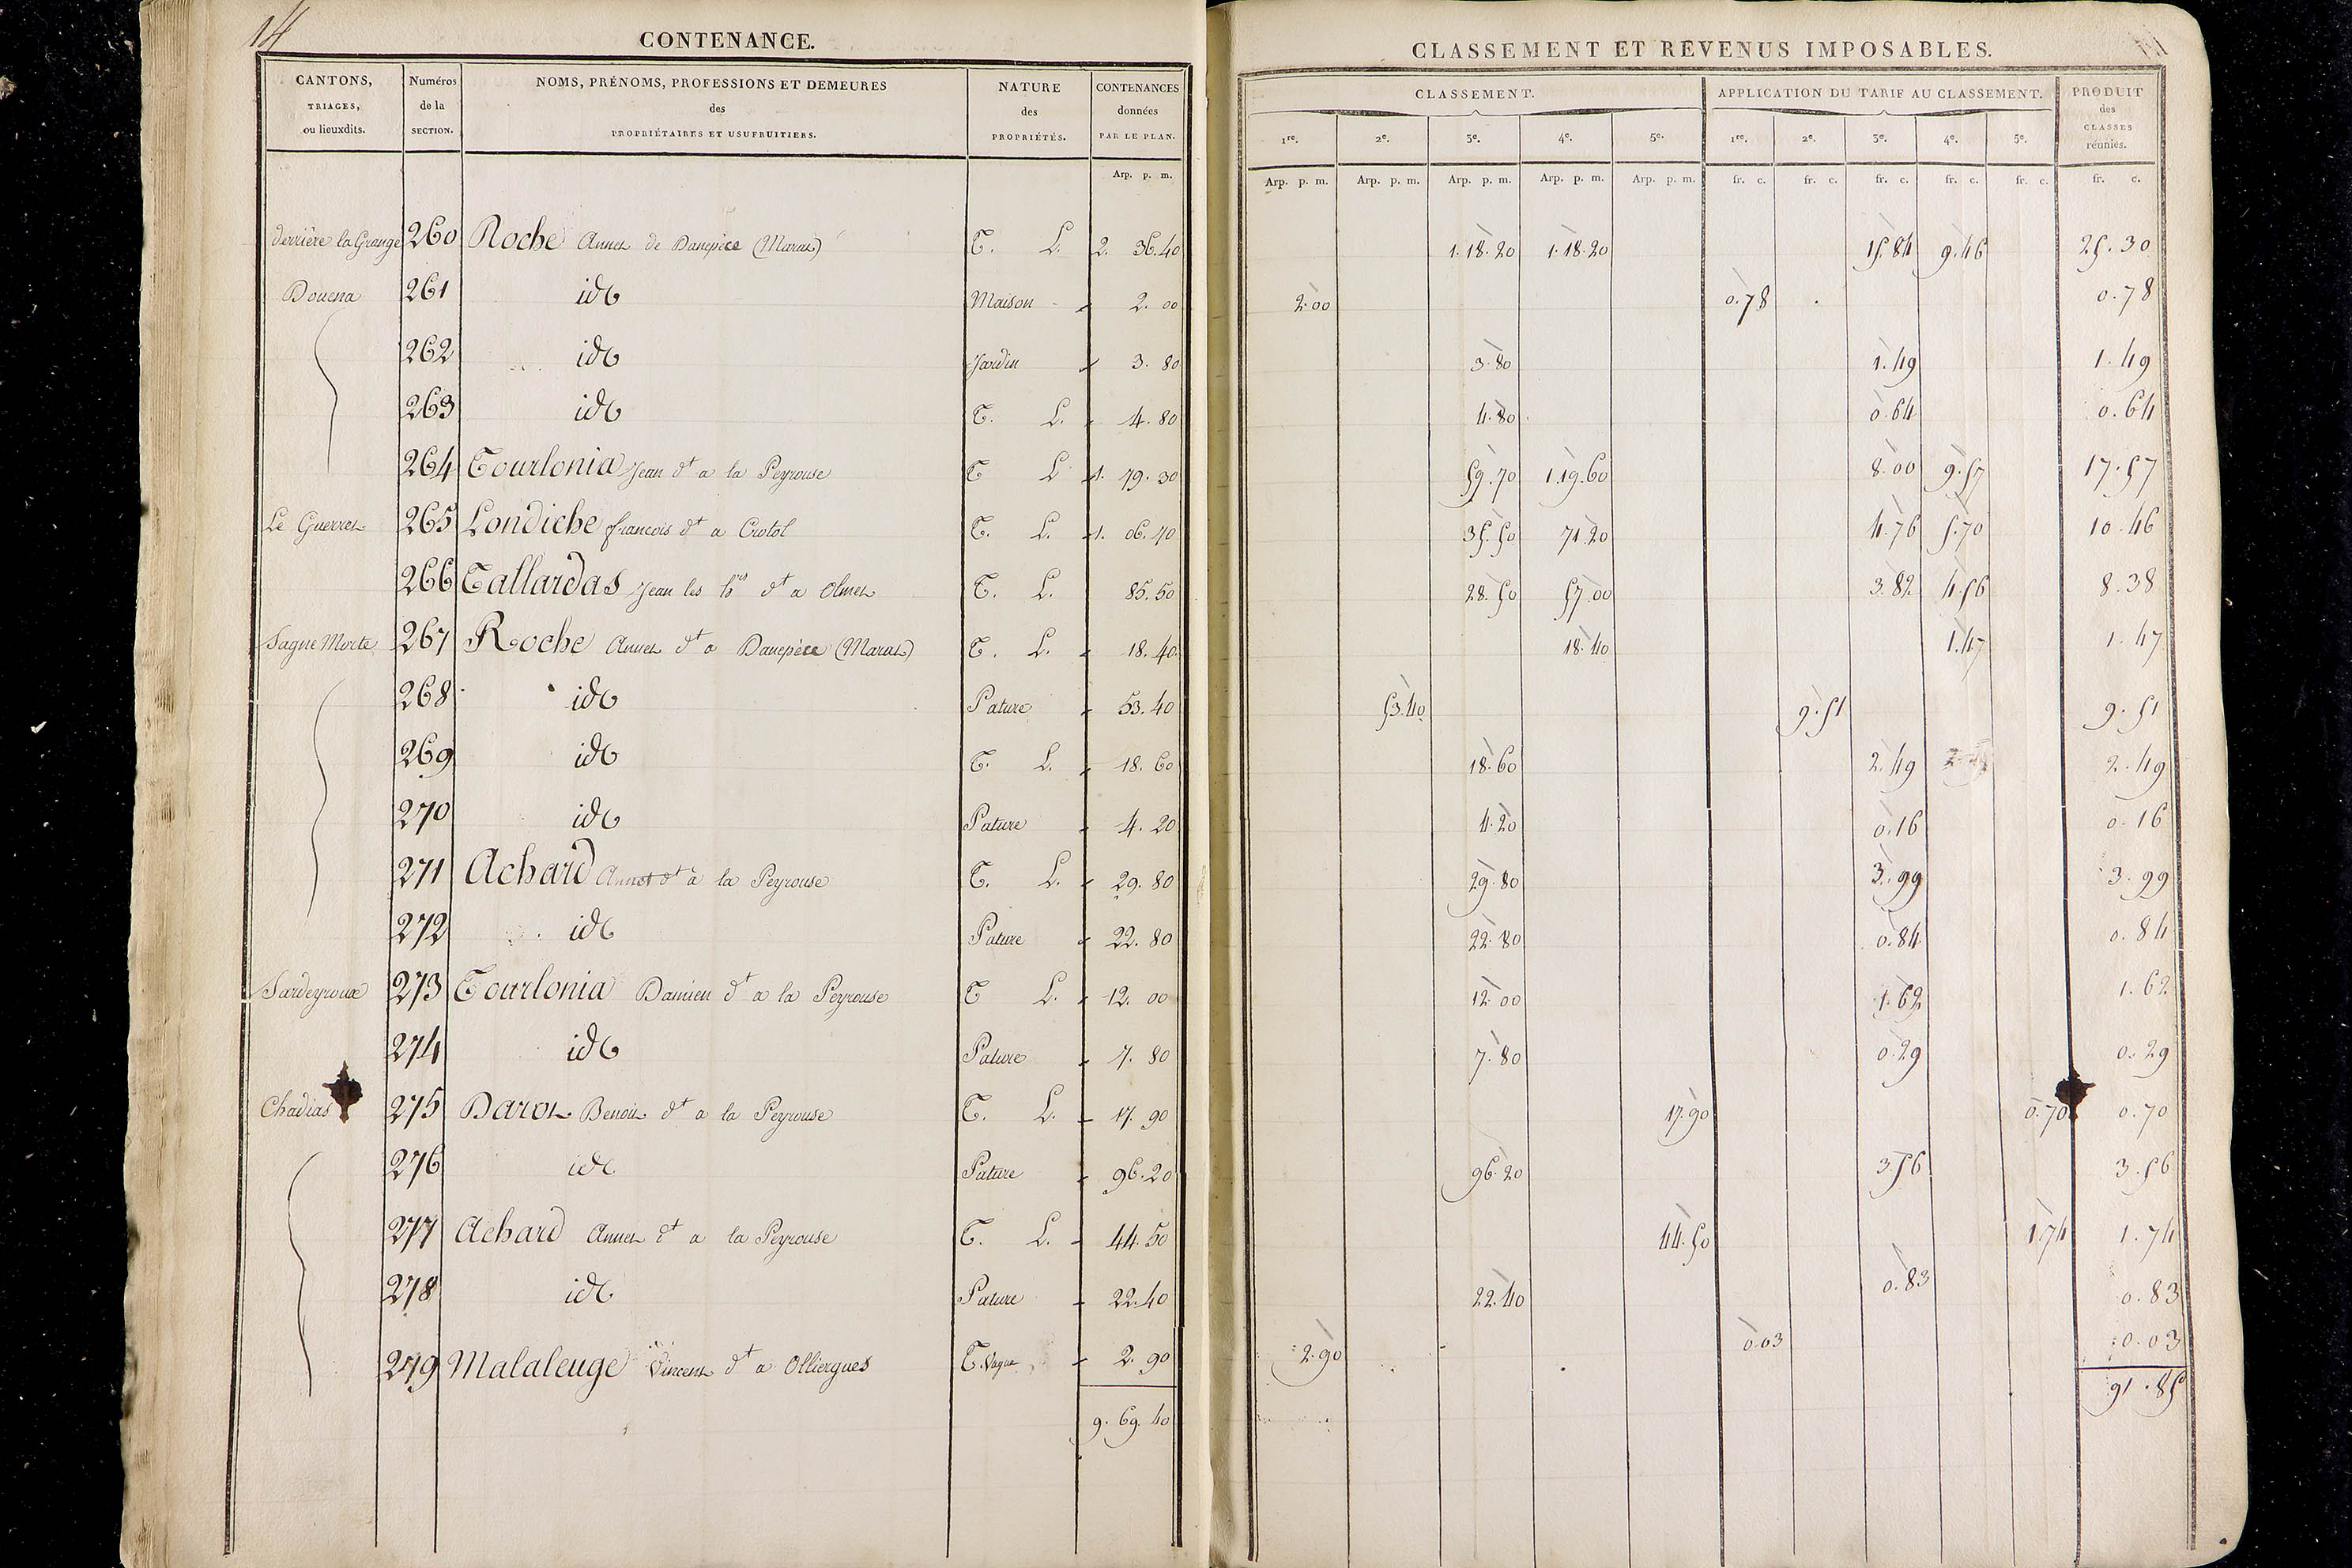 14
CONTENANCE.
CANTONS, TRIAGES, ou lieuxdits. Numéros de la SECTION. NOMS, PRÉNOMS, PROFESSIONS ET DEMEURES des PROPRIÉTAIRES ET USUFRUITIERS. NATURE des PROPRIÉTÉS. CONTENANCES données PAR LE PLAN.
Arp. p. m.
CLASSEMENT ET REVENUS IMPOSABLES.
CLASSEMENT. APPLICATION DU TARIF AU CLASSEMENT. PRODUIT des CLASSES réunies.
1re. 2e. 3e. 4e. 5e. 1re. 2e. 3e. 4e. 5e.
Arp. p. m. Arp. p. m. Arp. p. m. Arp. p. m. Arp. p. m. fr. c. fr. c. fr. c. fr. c. fr. c. fr. c.
derrière la Grange 260 Roche Annet de Danepèce (Marat) T. L. 2. 36.40 1.18.20 1.18.20 15.84 9.46 25.30
Douena 261 id Maison 2. 00 2.00 0.78 0.78
262 id Jardin 3. 80 3.80 1.49 1.49
263 id T. L. 4. 80 4.80 0.64 0.64
264 Tourlonia Jean dt a la Peyrouse T L 1. 79. 30 59.70 1.19.60 8.00 9.57 17.57
Le Guerret 265 Londiche francois dt a Crotol T. L. 1. 06. 70 35.50 71.20 4.76 5.70 10.46
266 Tallardas Jean les hrs dt a Olmet T. L. 85. 50 28.50 57.00 3.82 4.56 8.38
Sagne Morte 267 Roche Annet dt a Danepèce (Marat) T. L. 18. 40 18.40 1.47 1.47
268 id Pature 53. 40 53.40 9.51 9.51
269 id T. L. 18. 60 18.60 2.49 2.49
270 id Pature 4. 20 4.20 0.16 0.16
271 Achard Annet dt à la Peyrouse T. L. 29. 80 29.80 3.99 3.99
272 id Pature 22. 80 22.80 0.84 0.84
Sardeyroux 273 Tourlonia Damien dt a la Peyrouse T L. 12. 00 12.00 1.62 1.62
274 id Pature 7. 80 7.80 0.29 0.29
Chadias 275 Darot Benoit dt a la Peyrouse T. L. 17. 90 17.90 0.70 0.70
276 id Pature 96.20 96.20 3.56 3.56
277 Achard Annet dt a la Peyrouse T. L. 44.50 44.50 1.74 1.74
278 id Pature 22.40 22.40 0.83 0.83
279 Malaleuge Vincent dt a Olliergues T. Vague 2. 90 2.90 0.03 0.03
9. 69. 40 91.85